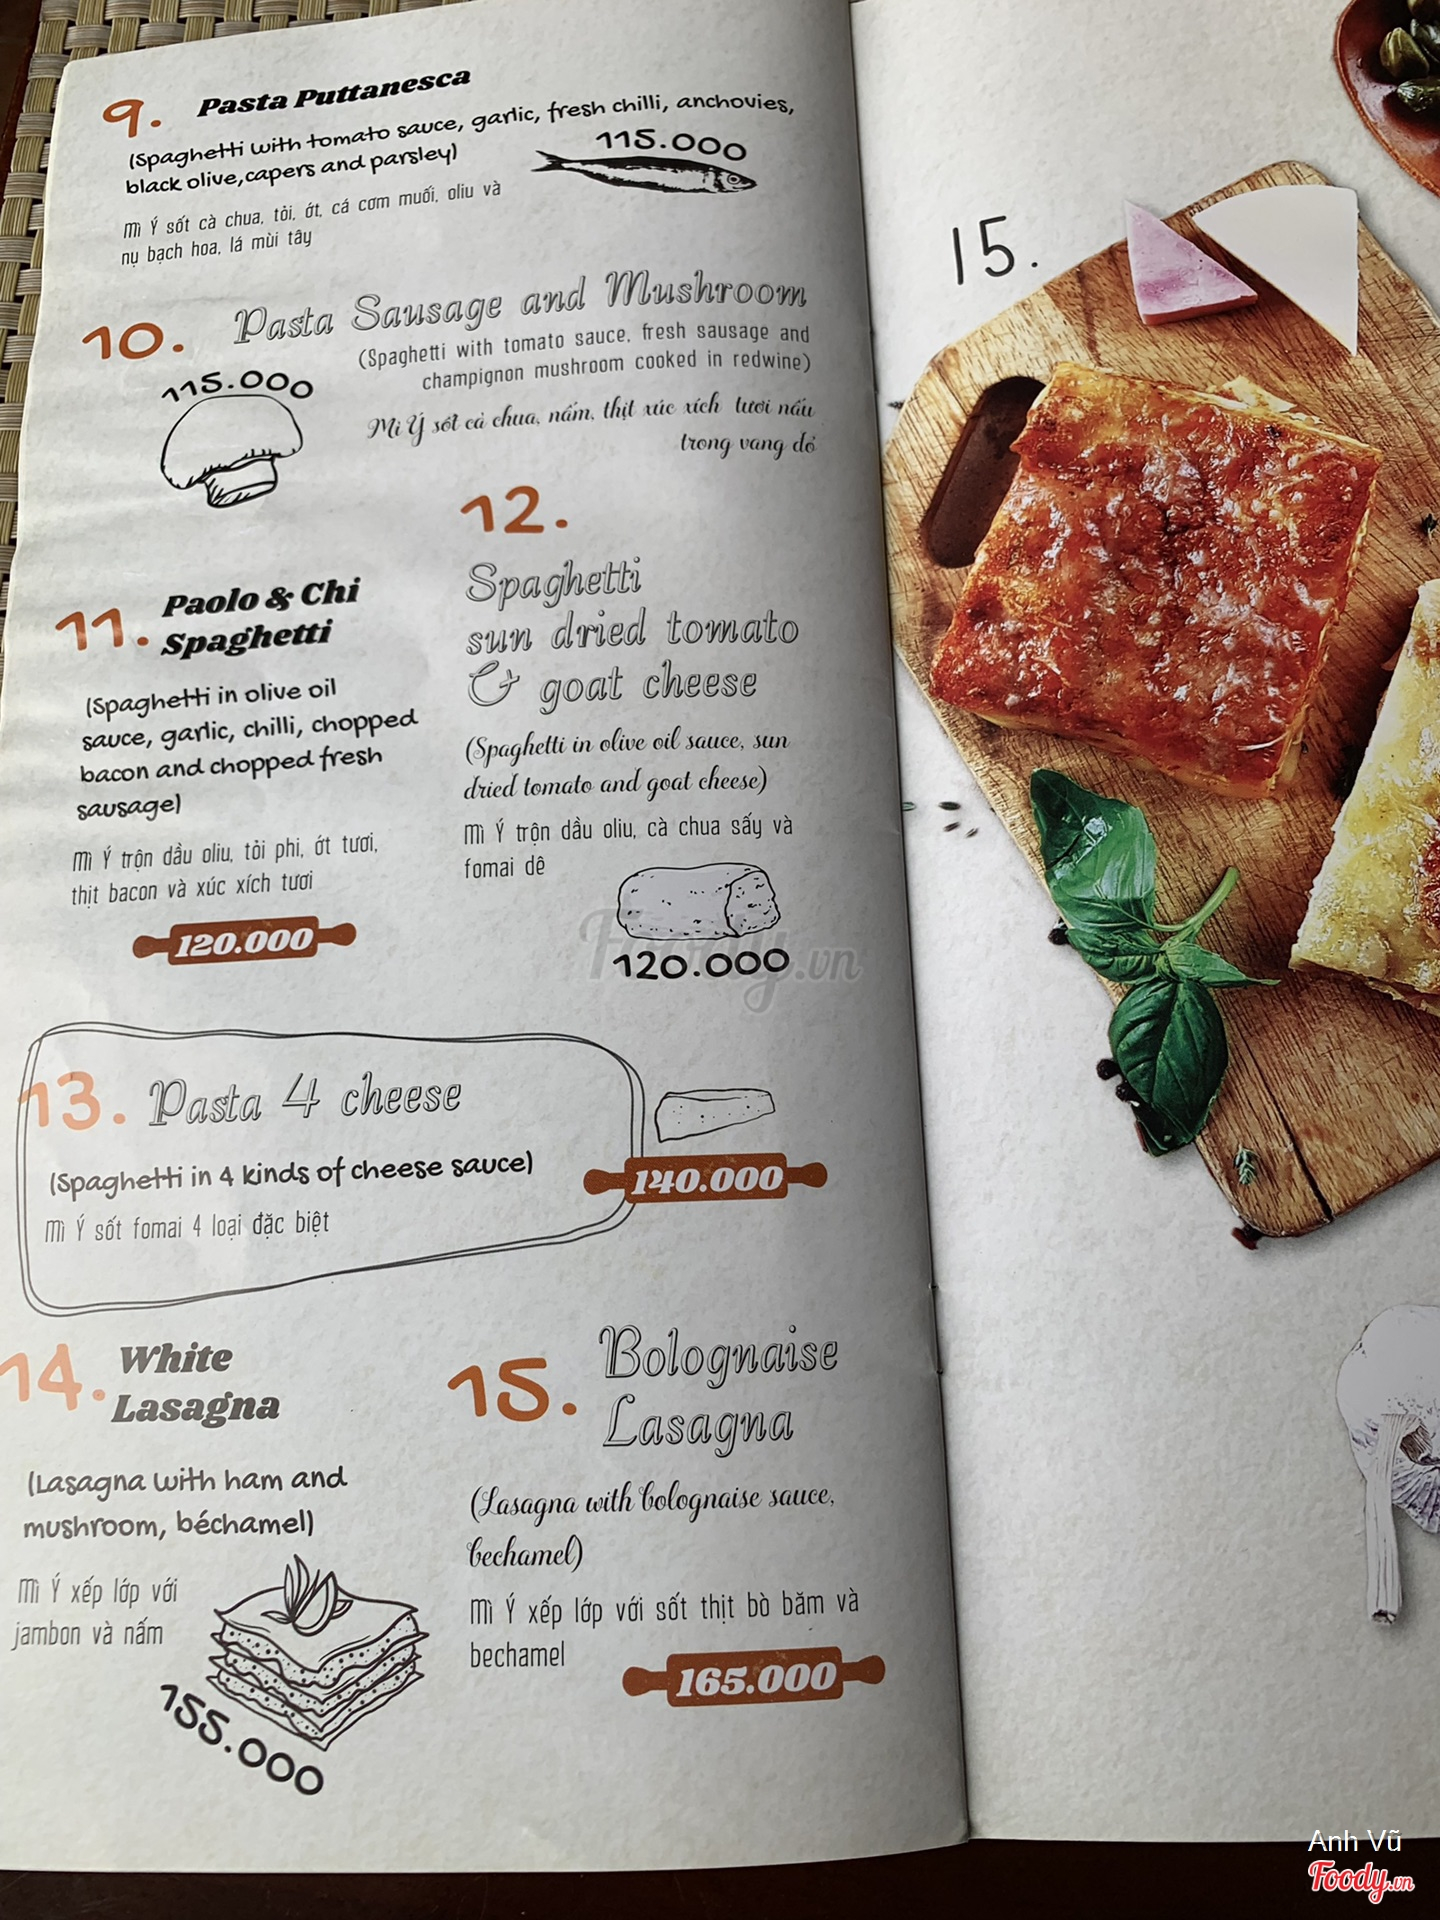 9. Pasta Puttanesca
(Spaghetti with tomato sauce, garlic, fresh chilli, anchovies,
black olive,capers and parsley)
115.000
Mì Ý sốt cà chua, tỏi, ớt, cá cơm muối, oliu và
nụ bạch hoa, lá mùi tây
10. Pasta Sausage and Mushroom
(Spaghetti with tomato sauce, fresh sausage and
champignon mushroom cooked in redwine)
115.000
Mì Ý sốt cà chua, nấm, thịt xúc xích tươi nấu
trong vang đỏ
11. Paolo & Chi
Spaghetti
(Spaghetti in olive oil
sauce, garlic, chilli, chopped
bacon and chopped fresh
sausage)
Mì Ý trộn dầu oliu, tỏi phi, ớt tươi,
thịt bacon và xúc xích tươi
120.000
12.
Spaghetti
sun dried tomato
& goat cheese
(Spaghetti in olive oil sauce, sun
dried tomato and goat cheese)
Mì Ý trộn dầu oliu, cà chua sấy và
fomai dê
120.000
Foody.vn
13. Pasta 4 cheese
(Spaghetti in 4 kinds of cheese sauce)
Mì Ý sốt fomai 4 loại đặc biệt
140.000
14. White
Lasagna
(Lasagna with ham and
mushroom, béchamel)
Mì Ý xếp lớp với
jambon và nấm
155.000
15. Bolognaise
Lasagna
(Lasagna with bolognaise sauce,
bechamel)
Mì Ý xếp lớp với sốt thịt bò băm và
bechamel
165.000
15.
Anh Vũ
Foody.vn